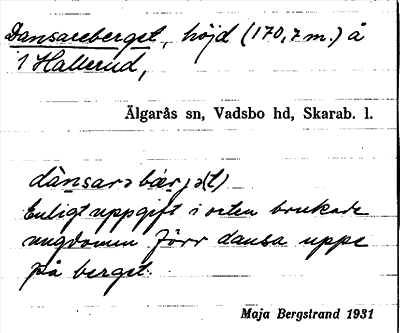 Dansareberget, höjd (170,7 m.) å
1 Hallerud,
Älgarås sn, Vadsbo hd, Skarab. l.
dànsarə bær̨ jə(t)
Enligt uppgift i orten brukade
ungdomen förr dansa uppe
på berget.
Maja Bergstrand 1931